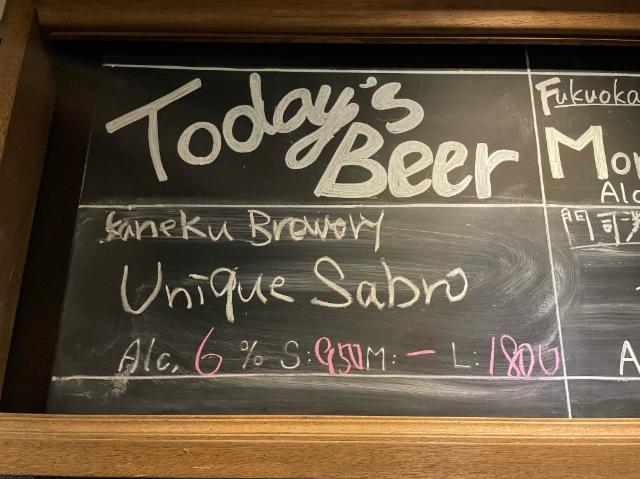 Today's
Beer
Kaneku Brewory
Unique Sabro
Alc. 6 % S: 950 M: — L: 1800
Fukuoka
Alc
門司
A